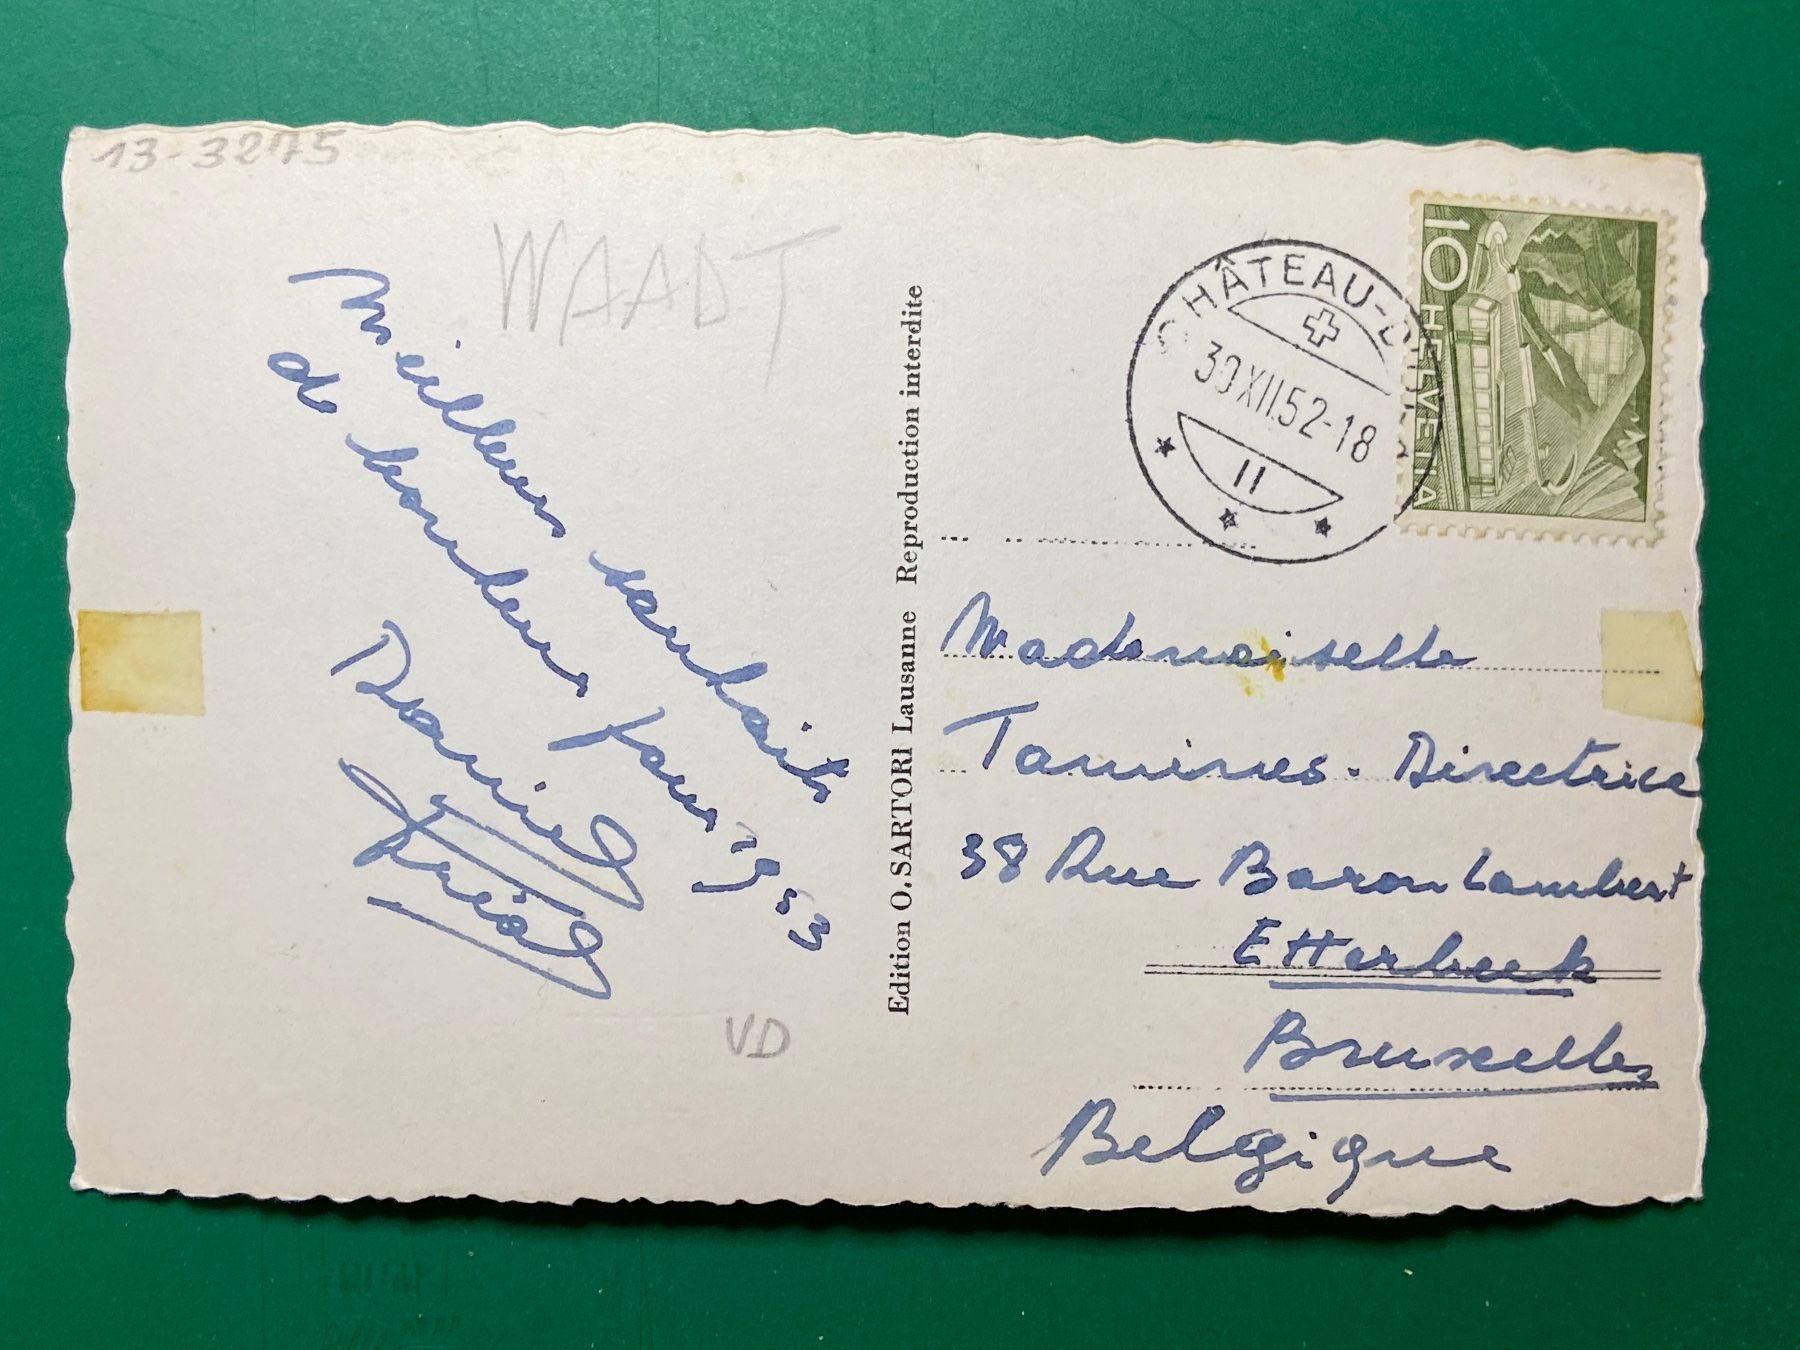 13-3275
WAADT
Meilleurs souhaits
de bonheur pour 1953
Daniel
VD
Edition O. SARTORI Lausanne Reproduction interdite
CHÂTEAU-D
30.XII.52-18
11
10 HELVETIA
Mademoiselle
Tamines. Directrice
38 Rue Baron Lambert
Etterbeek
Bruxelles
Belgique